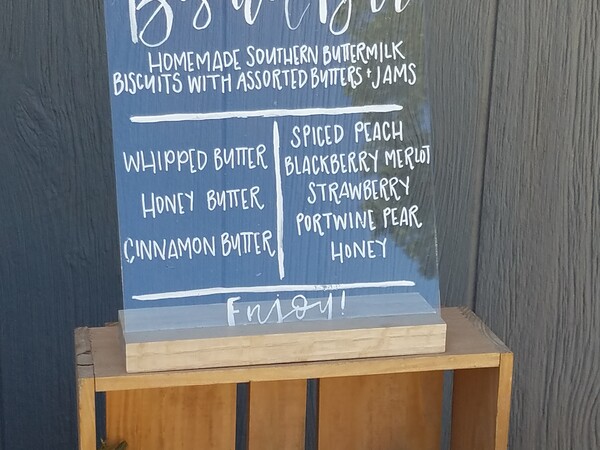 Biscuit Bar
HOMEMADE SOUTHERN BUTTERMILK
BISCUITS WITH ASSORTED BUTTERS + JAMS
WHIPPED BUTTER
HONEY BUTTER
CINNAMON BUTTER
SPICED PEACH
BLACKBERRY MERLOT
STRAWBERRY
PORTWINE PEAR
HONEY
Enjoy!